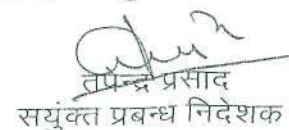 तपेन्द्र प्रसाद
सयुंक्त प्रबन्ध निदेशक